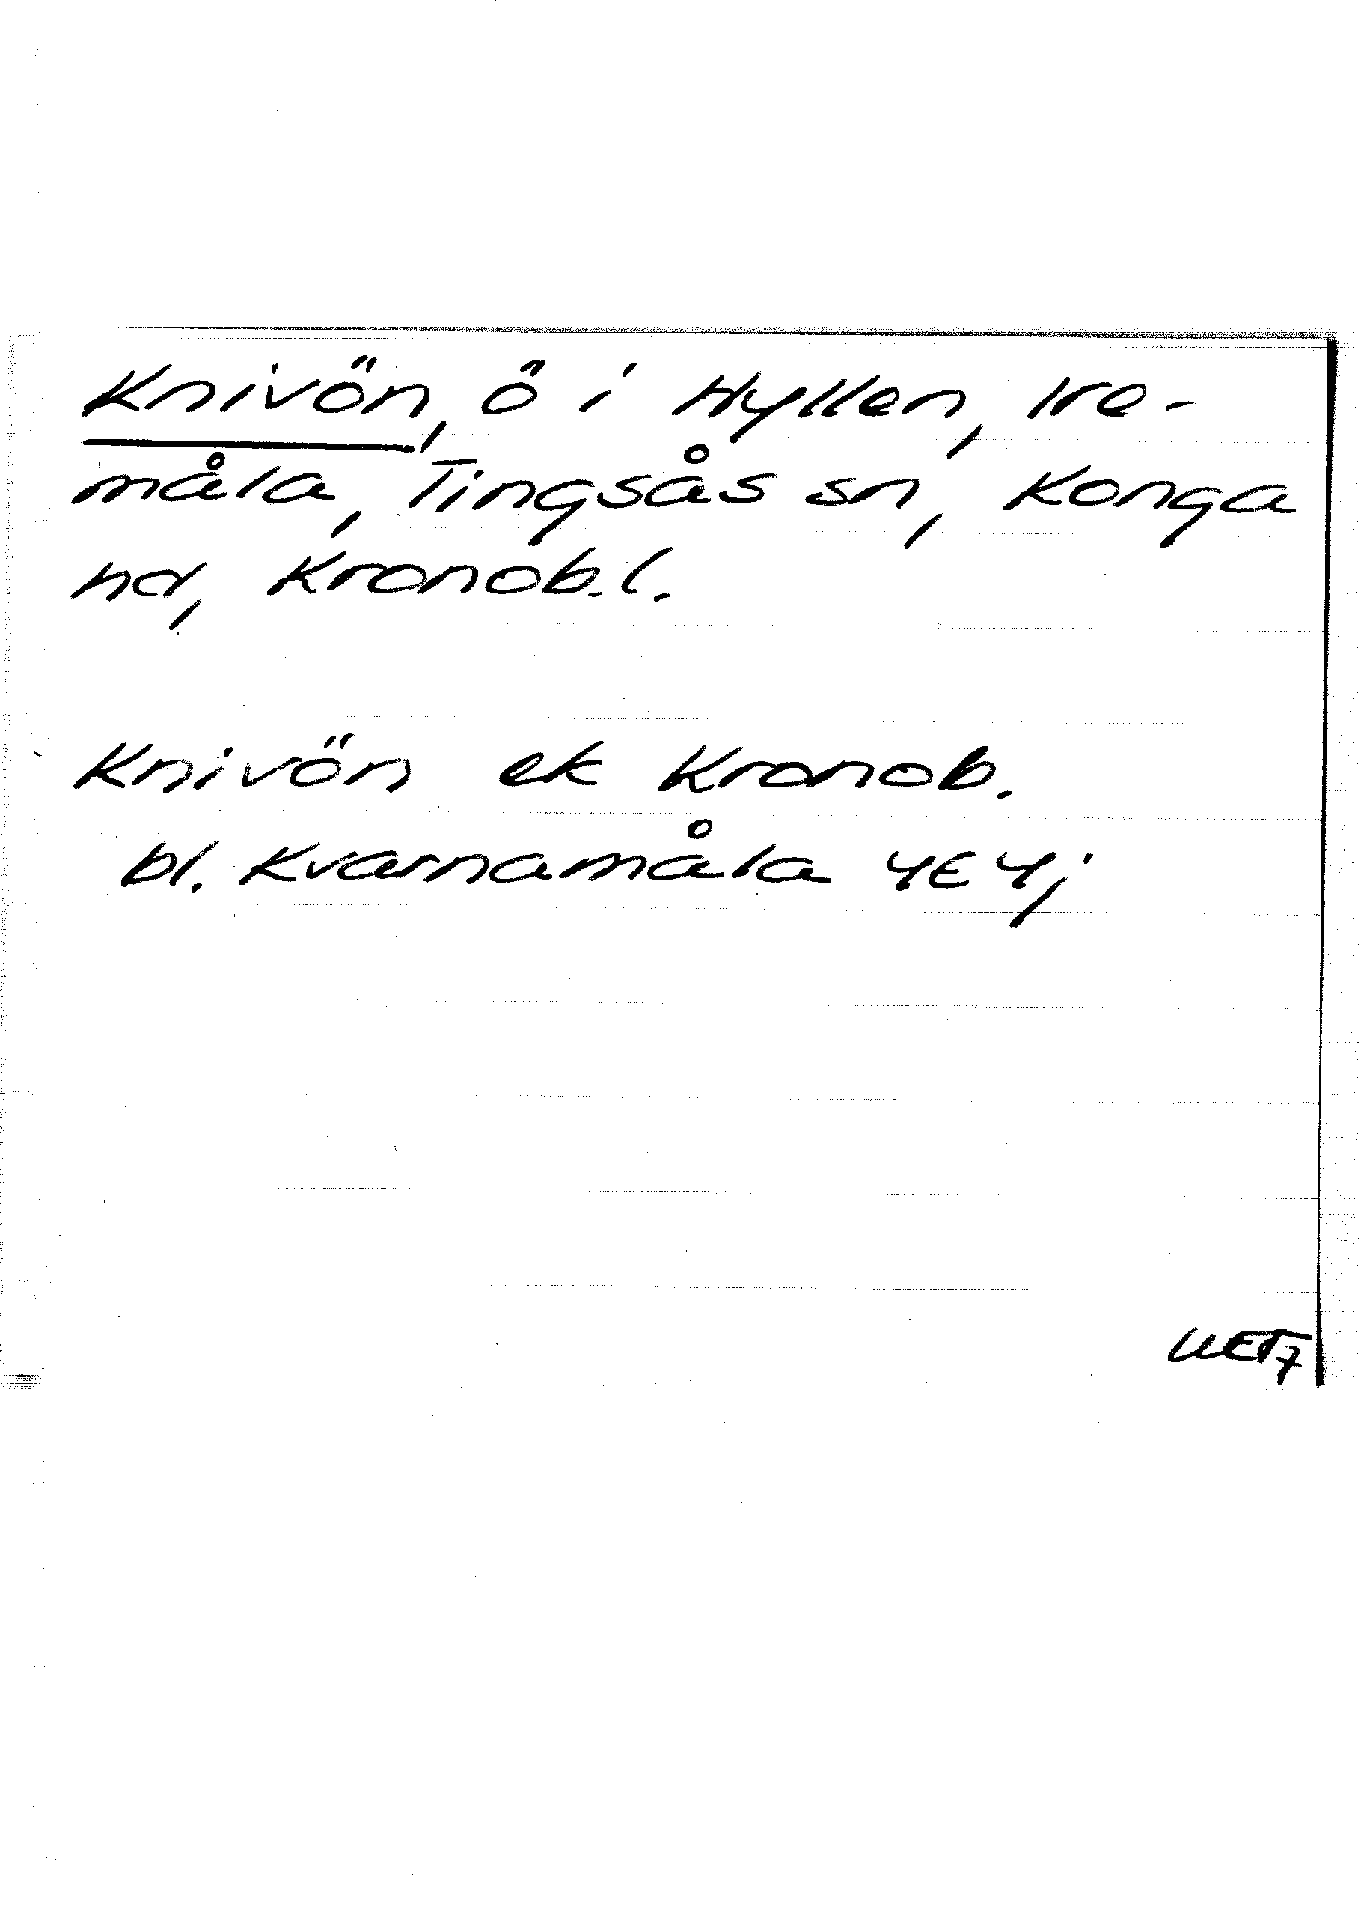 Knivön, ö i Hyllen, Ire-
måla, Tingsås sn, Konga
hd, Kronob. l.
Knivön ek Kronob.
bl. Kvarnamåla 4E4j